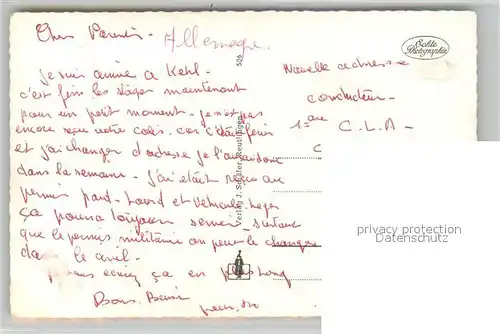 Chers Parents - Allemagne.
je suis arrivé a Kehl -
c'est fini les stages maintenant
pour un petit moment - je n'est pas
encore reçu votre colis - car c'était fini
et j'ai changer d'adresse je l'aurai donc
dans la semaine - j'ai était reçu au
permis poid - Lourd et vehicule leger
ça pourra toujours servir - surtout
que le permis militaire on peut le changer
dans le civil -
je vous ecrirez ça en plus long
Bons Baisers
Nouvelle adresse
conducteur -
1ere C.L.A -
C
Echte Photographie
526
Verlag J. Schäfer, Reutlingen
privacy protection
AnsichtskartenVersand.com